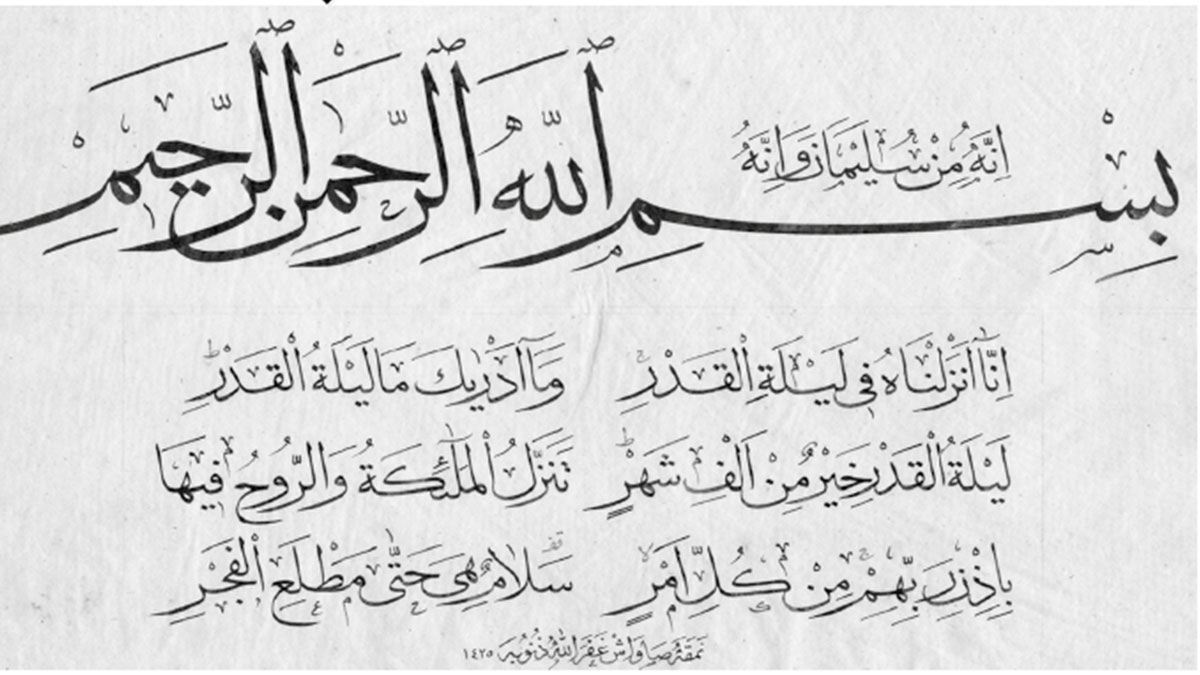 إِنَّهُ مِنْ سُلَيْمَانَ وَإِنَّهُ
بِسْمِ ٱللَّهِ ٱلرَّحْمٰنِ ٱلرَّحِيمِ
اِنَّٓا اَنْزَلْنَاهُ فِى لَيْلَةِ الْقَدْرِ وَمَٓا اَدْرٰيكَ مَا لَيْلَةُ الْقَدْرِ
لَيْلَةُ الْقَدْرِ خَيْرٌ مِنْ اَلْفِ شَهْرٍ تَنَزَّلُ الْمَلٰٓئِكَةُ وَالرُّوحُ فِيهَا
بِاِذْنِ رَبِّهِمْ مِنْ كُلِّ اَمْرٍ سَلَامٌ هِىَ حَتّٰى مَطْلَعِ الْفَجْرِ
نمقه صاواش غفر الله ذنوبه ١٤٢٥